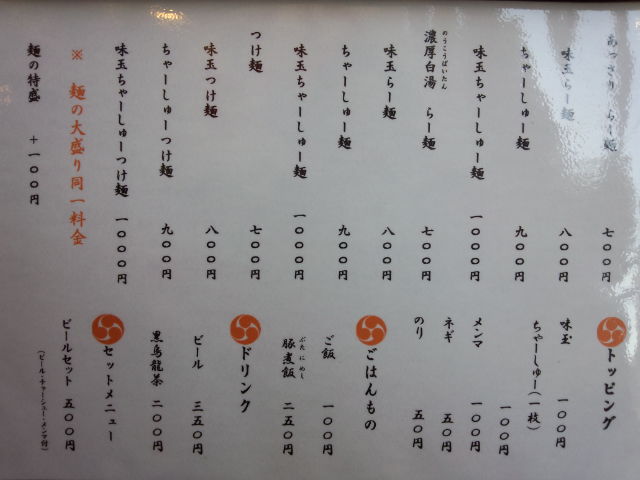 あっさり らー麺 七〇〇円
味玉らー麺 八〇〇円
ちゃーしゅー麺 九〇〇円
味玉ちゃーしゅー麺 一〇〇〇円
濃厚白湯 らー麺 七〇〇円
のうこうぱいたん
味玉らー麺 八〇〇円
ちゃーしゅー麺 九〇〇円
味玉ちゃーしゅー麺 一〇〇〇円
つけ麺 七〇〇円
味玉つけ麺 八〇〇円
ちゃーしゅーつけ麺 九〇〇円
味玉ちゃーしゅーつけ麺 一〇〇〇円
※ 麺の大盛り同一料金
麺の特盛 +一〇〇円
トッピング
味玉 一〇〇円
ちゃーしゅー(一枚) 一〇〇円
メンマ 一〇〇円
ネギ 五〇円
のり 五〇円
ごはんもの
ご飯 一〇〇円
豚煮飯 二五〇円
ぶたにめし
ドリンク
ビール 三五〇円
黒烏龍茶 二〇〇円
セットメニュー
ビールセット 五〇〇円
(ビール・チャーシュー・メンマ付)